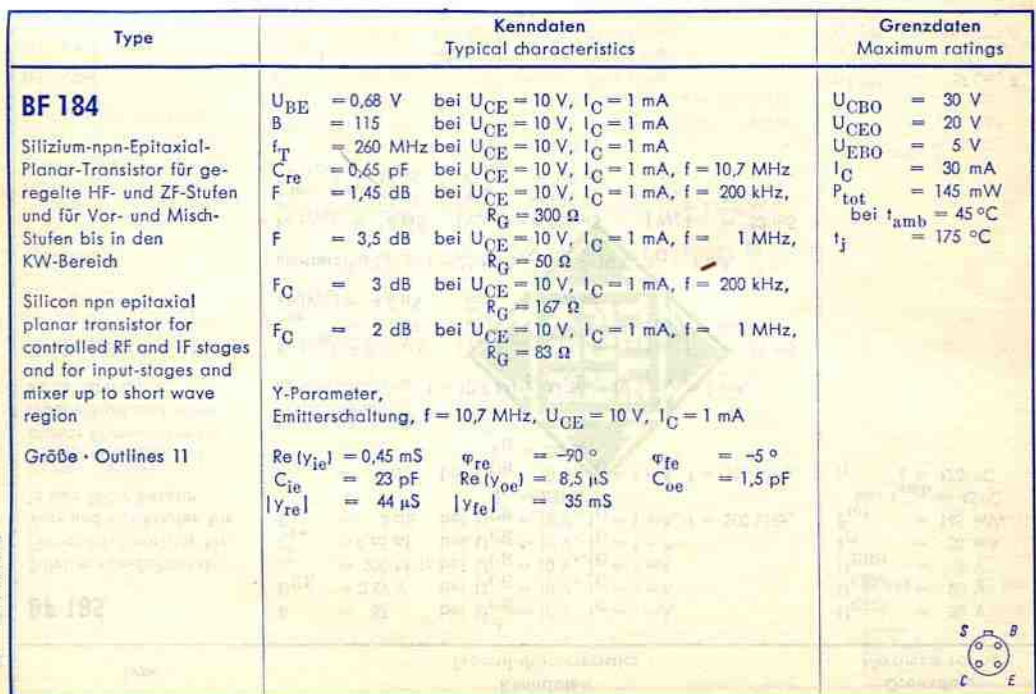 Type
Kenndaten
Typical characteristics
Grenzdaten
Maximum ratings
BF 184
Silizium-npn-Epitaxial-
Planar-Transistor für ge-
regelte HF- und ZF-Stufen
und für Vor- und Misch-
Stufen bis in den
KW-Bereich
Silicon npn epitaxial
planar transistor for
controlled RF and IF stages
and for input-stages and
mixer up to short wave
region
Größe · Outlines 11
U_BE = 0,68 V bei U_CE = 10 V, I_C = 1 mA
B = 115 bei U_CE = 10 V, I_C = 1 mA
f_T = 260 MHz bei U_CE = 10 V, I_C = 1 mA
C_re = 0,65 pF bei U_CE = 10 V, I_C = 1 mA, f = 10,7 MHz
F = 1,45 dB bei U_CE = 10 V, I_C = 1 mA, f = 200 kHz,
R_G = 300 Ω
F = 3,5 dB bei U_CE = 10 V, I_C = 1 mA, f = 1 MHz,
R_G = 50 Ω
F_C = 3 dB bei U_CE = 10 V, I_C = 1 mA, f = 200 kHz,
R_G = 167 Ω
F_C = 2 dB bei U_CE = 10 V, I_C = 1 mA, f = 1 MHz,
R_G = 83 Ω
Y-Parameter,
Emitterschaltung, f = 10,7 MHz, U_CE = 10 V, I_C = 1 mA
Re (y_ie) = 0,45 mS φ_re = –90 ° φ_fe = –5 °
C_ie = 23 pF Re (y_oe) = 8,5 µS C_oe = 1,5 pF
|y_re| = 44 µS |y_fe| = 35 mS
U_CBO = 30 V
U_CEO = 20 V
U_EBO = 5 V
I_C = 30 mA
P_tot = 145 mW
bei t_amb = 45 °C
t_j = 175 °C
S B
C E